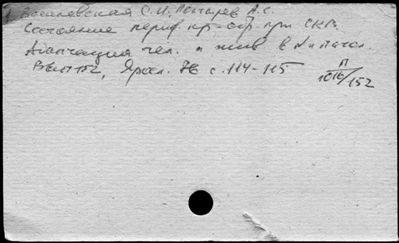 С.И., Понтарев А.С.
Состояние периф. кр-обр. при СКВ.
Адаптация чел. и жив. в N и патол.
Вып 152, Ярал. 76 с. 114-115
П
1016/152